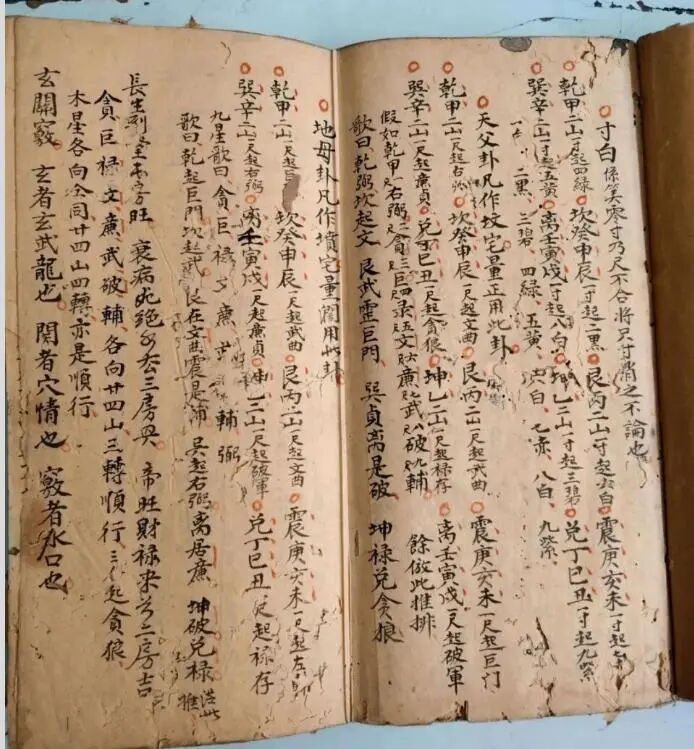 寸白 係算零寸乃尺不合將尺寸消之不論也
乾甲二山一寸起四綠 坎癸申辰一寸起二黑 艮丙二山一寸起六白 震庚亥未一寸起七赤
巽辛二山一寸起五黃 離壬寅戌一寸起八白 坤乙二山一寸起三碧 兌丁巳丑一寸起九紫
一白 二黑 三碧 四綠 五黃 六白 七赤 八白 九紫
天父卦凡作坟宅量正用此卦
乾甲二山一尺起右弼 坎癸申辰一尺起文曲 艮丙二山一尺起武曲 震庚亥未一尺起巨门
巽辛二山一尺起廉貞 兌丁巳丑一尺起貪狼 坤乙二山一尺起禄存 离壬寅戌一尺起破軍
假如乾甲一尺右弼二尺貪三尺巨四尺禄五尺文六尺廉七尺武八尺破九尺輔 餘倣此推排
歌曰乾弼坎起文 艮武震巨門 巽貞离是破 坤禄兌貪狼
地母卦凡作墳宅量闊用此卦
乾甲二山一尺起巨 坎癸申辰一尺起武曲 艮丙二山一尺起文曲 震庚亥未一尺起左輔
巽辛二山一尺起右弼 离壬寅戌一尺起廉貞 坤乙二山一尺起破軍 兌丁巳丑一尺起禄存
九星歌曰貪 巨 禄 文 廉 武 破 輔 弼
歌曰乾起巨門坎起武 艮在文曲震是浦 巽起右弼离居廉 坤破兌禄 推
長生到 旺 衰病死绝 三房興 帝旺財禄来 二房吉
貪巨禄文廉武破輔各向廿四山三轉順行 起貪狼
木星各向仝同廿四山四轉亦是順行
玄關竅 玄者玄武龍也 関者穴情也 竅者水口也